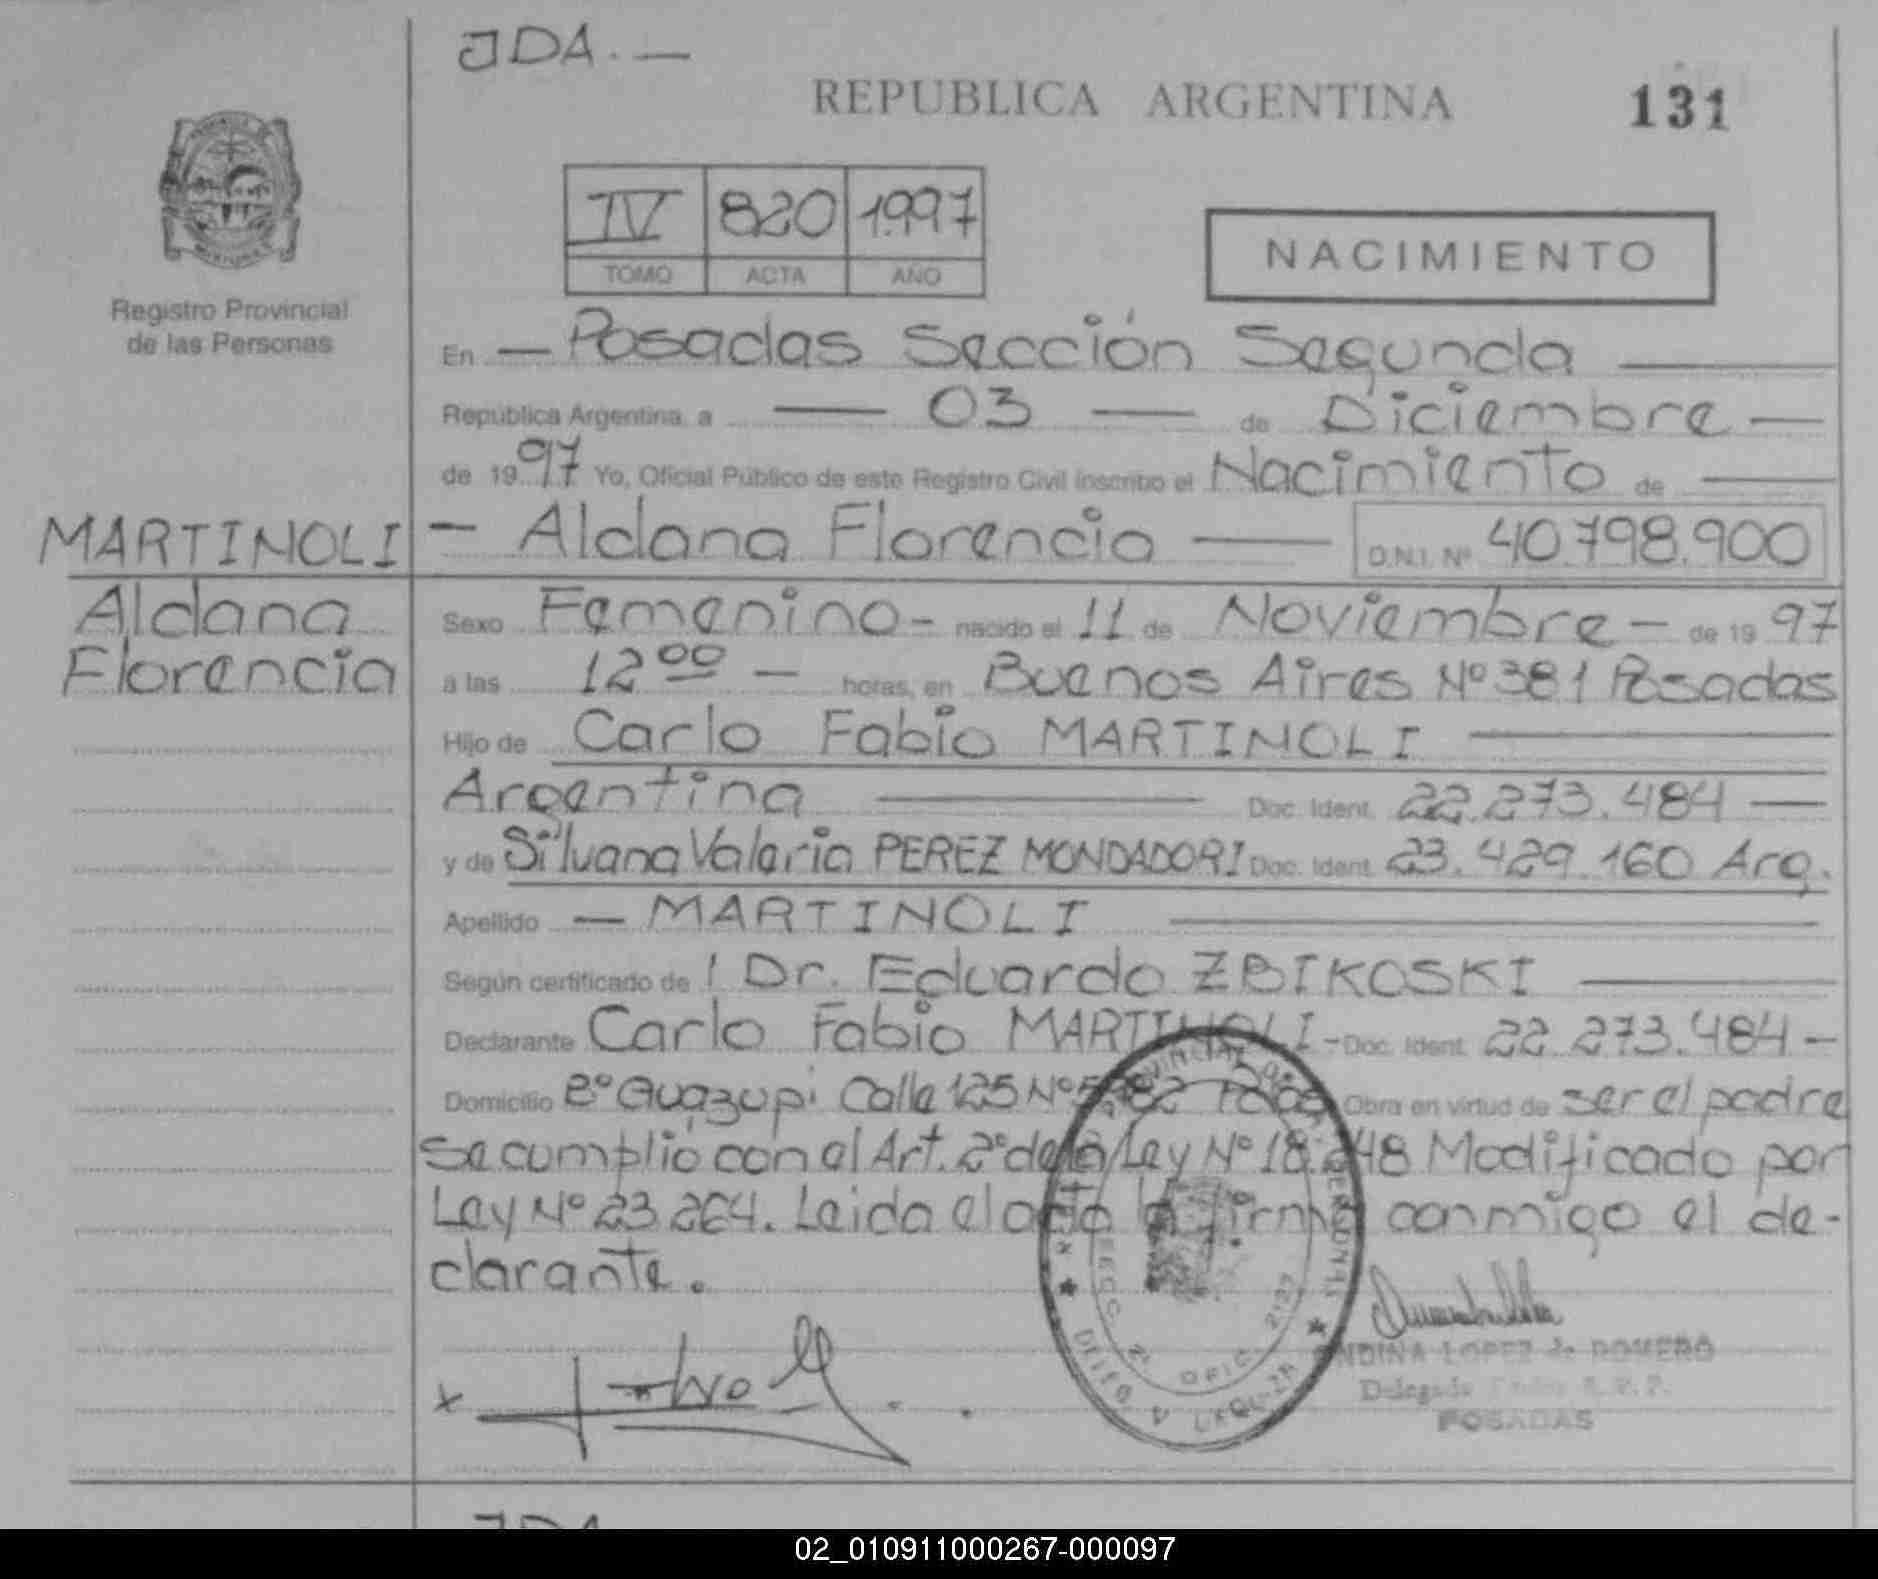 JDA. —
REPUBLICA ARGENTINA 131
IV 820 1997
TOMO ACTA AÑO
NACIMIENTO
Registro Provincial
de las Personas
En — Posadas Sección Segunda —
República Argentina, a — 03 — de Diciembre —
de 1997 Yo, Oficial Público de este Registro Civil inscribo el Nacimiento de —
MARTINOLI
Aldana
Florencia
— Aldana Florencia — D.N.I. Nº 40.798.900
Sexo Femenino - nacido el 11 de Noviembre - de 1997
a las 12⁰⁰ — horas, en Buenos Aires Nº 381 Posadas
Hijo de Carlo Fabio MARTINOLI —
Argentina — Doc. Ident. 22.273.484 —
y de Silvana Valeria PEREZ MONDADORI Doc. Ident. 23.429.160 Arg.
Apellido — MARTINOLI —
Según certificado de Dr. Eduardo ZBIKOSKI —
Declarante Carlo Fabio MARTINOLI - Doc. Ident. 22.273.484 -
Domicilio Bº Guazupi Calle 125 Nº Pdas Obra en virtud de ser el padre
se cumplió con el Art. 2º de la Ley Nº 18.248 Modificado por
Ley Nº 23.264. Leida el acta la firma conmigo el de-
clarante.
SECC. 2ª OFIC.
LOPEZ de ROMERO
POSADAS
JDA
02_010911000267-000097